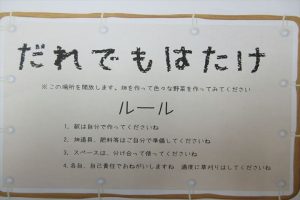 だれでもはたけ
※この場所を開放します。畑を作って色々な野菜を作ってみてください
ルール
1、畝は自分で作ってくださいね
2、畑道具、肥料等はご自分で準備してくださいね
3、スペースは、分け合って使ってくださいね
4、各自、自己責任でおねがいしますね 適度に草刈りはしてくださいね